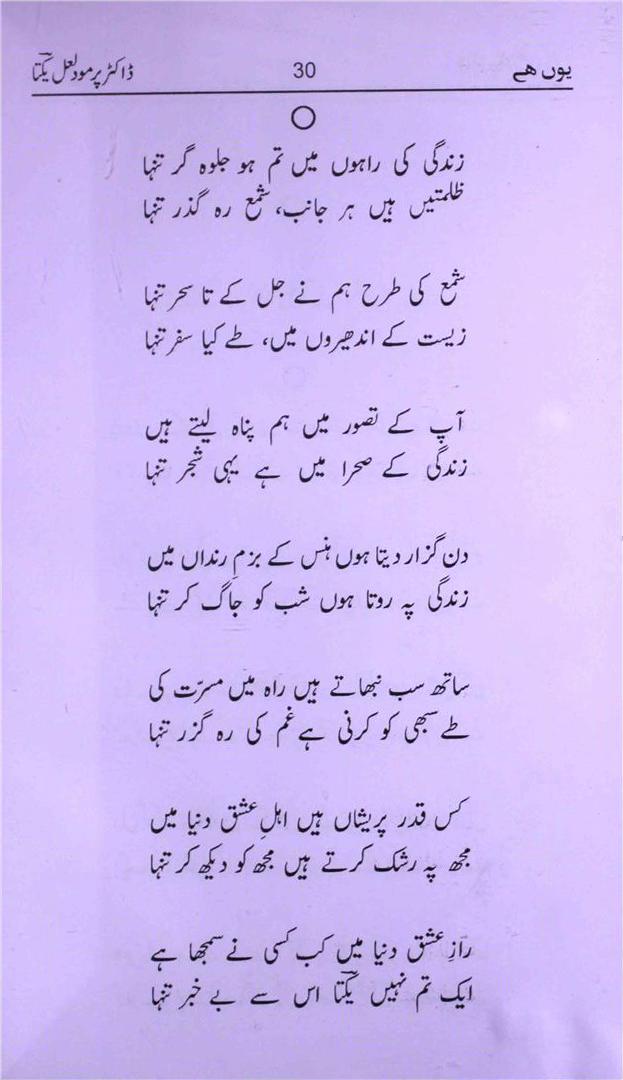 یوں ھے 30 ڈاکٹر پرمود لعل یکتاؔ
زندگی کی راہوں میں تم ہو جلوہ گر تنہا
ظلمتیں ہیں ہر جانب، شمع رہ گذر تنہا
شمع کی طرح ہم نے جل کے تا سحر تنہا
زیست کے اندھیروں میں، طے کیا سفر تنہا
آپ کے تصور میں ہم پناہ لیتے ہیں
زندگی کے صحرا میں ہے یہی شجر تنہا
دن گزار دیتا ہوں ہنس کے بزمِ رنداں میں
زندگی پہ روتا ہوں شب کو جاگ کر تنہا
ساتھ سب نبھاتے ہیں راہ میں مسرّت کی
طے سبھی کو کرنی ہے غم کی رہ گزر تنہا
کس قدر پریشاں ہیں اہلِ عشق دنیا میں
مجھ پہ رشک کرتے ہیں مجھ کو دیکھ کر تنہا
رازِ عشق دنیا میں کب کسی نے سمجھا ہے
ایک تم نہیں یکتاؔ اس سے بے خبر تنہا